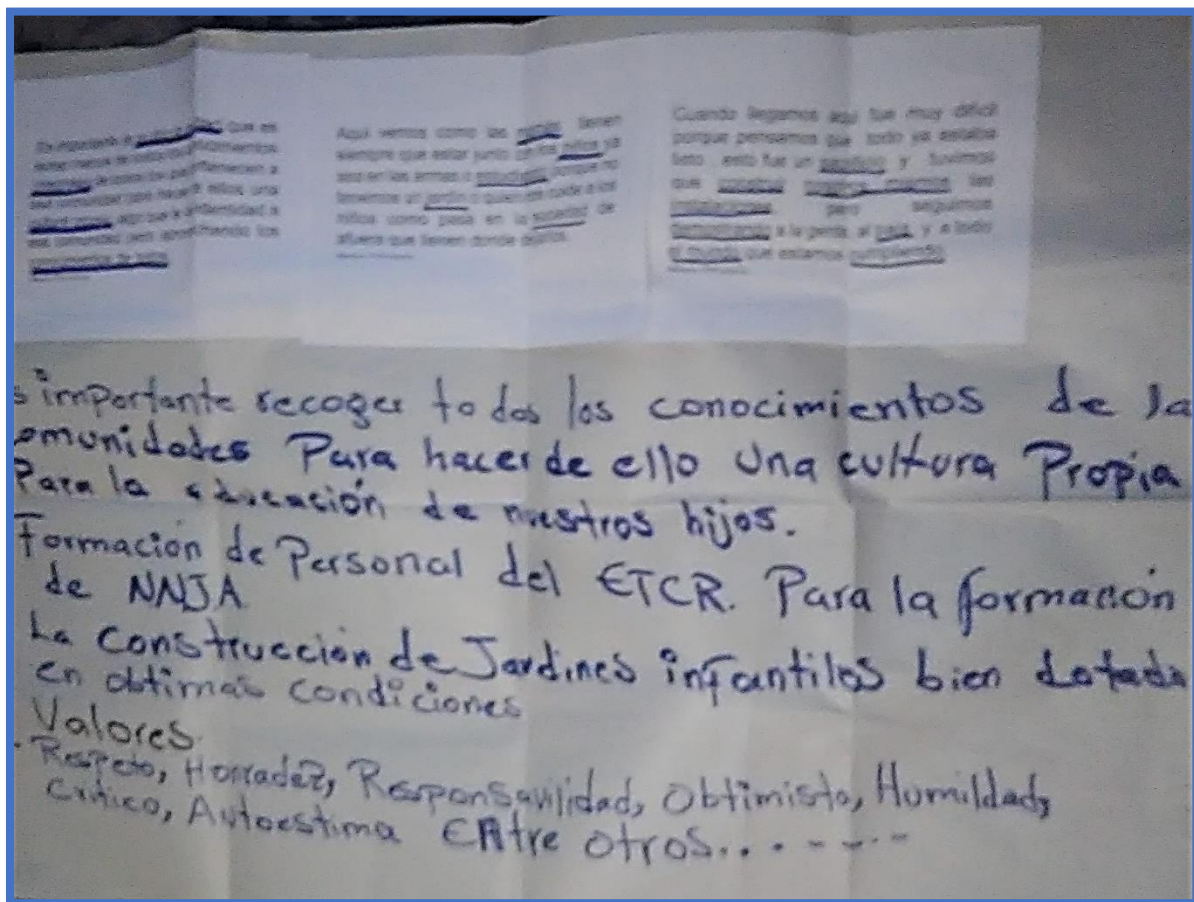 que es
pertenecen a
una
identidad a
esa comunidad pero aprovechando los
conocimientos de todos
Aquí vemos como las tienen
siempre que estar junto niños ya
sea en las armas o estudiando porque no
tenemos un jardín o quien nos cuide a los
niños como pasa en la de
afuera que tienen donde dejarlos
Cuando llegamos aquí fue muy difícil
porque pensamos que todo ya estaba
listo esto fue un y tuvimos
que construir las
pero seguimos
demostrando a la gente, al país, y a todo
el mundo que estamos cumpliendo
s importante recoger todos los conocimientos de la
omunidades Para hacer de ello Una cultura Propia
Para la educación de nuestros hijos.
Formación de Personal del ETCR. Para la formación
de NNJA
La Construcción de Jardines infantiles bien dotada
en obtimas condiciones
Valores.
Respeto, Honradez, Responsavilidad, Obtimista, Humildad,
Critico, Autoestima Entre otros.......